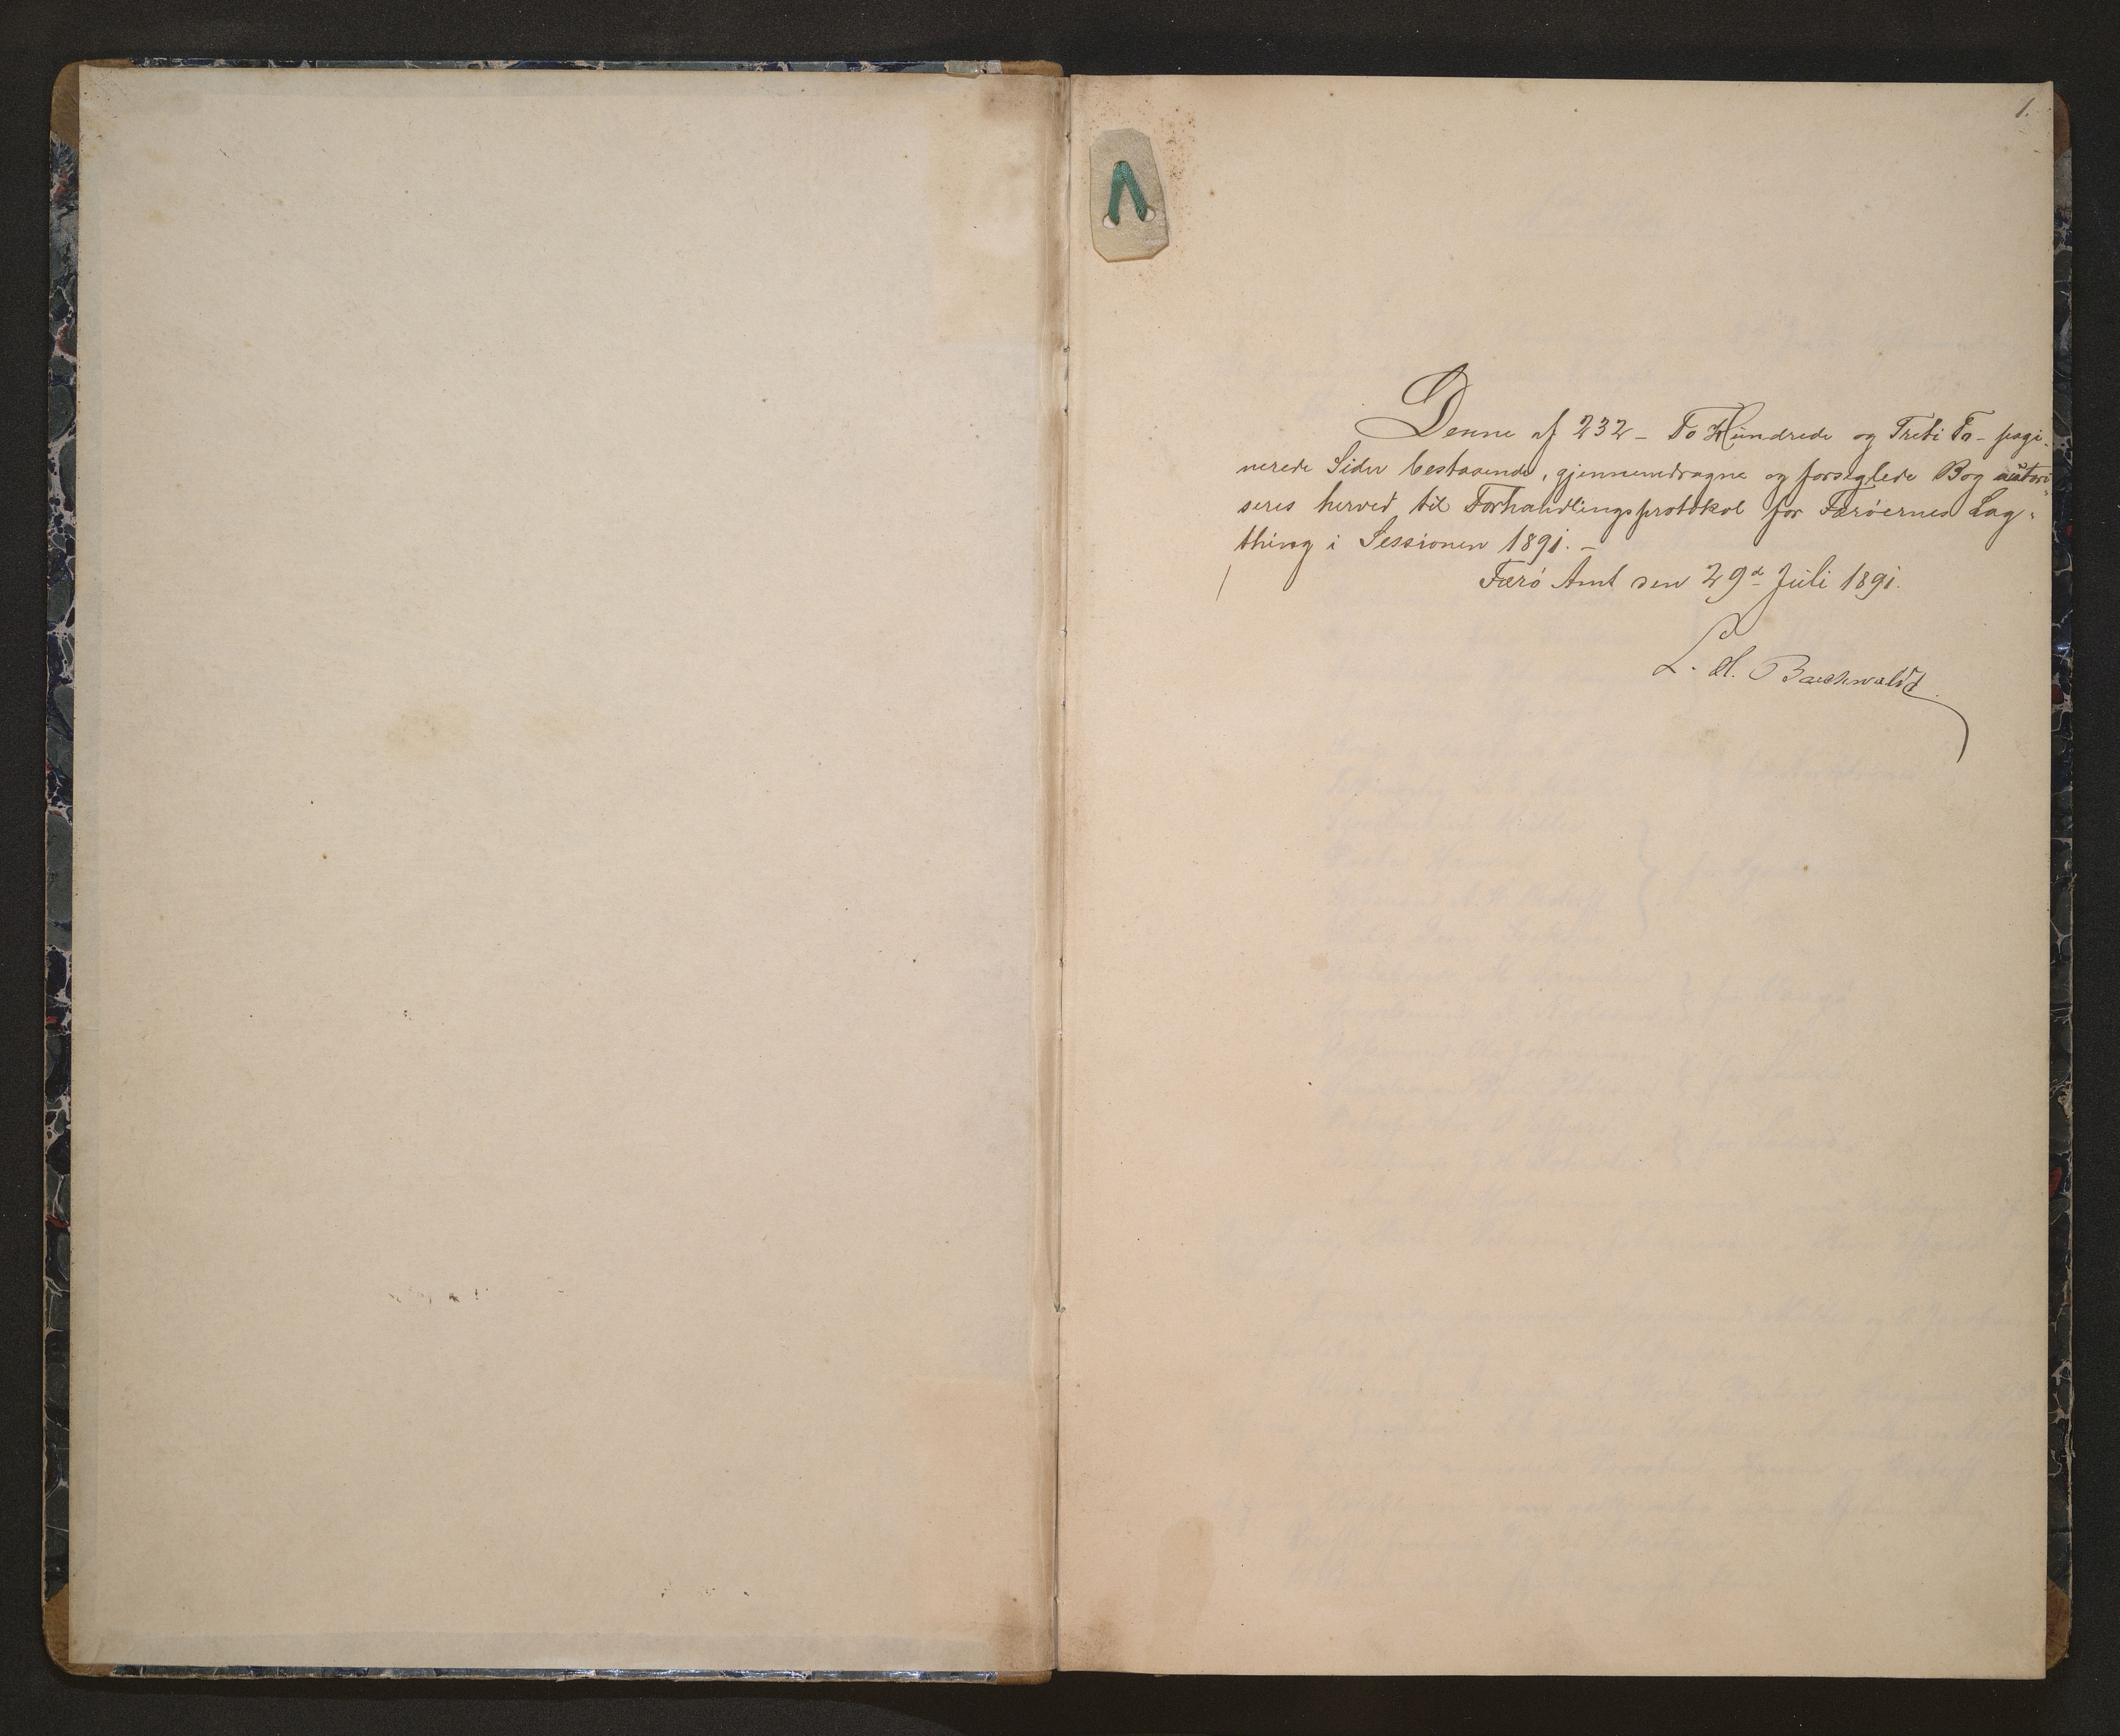 1.
Denne af 232 - To Hundrede og Treti To - pagi-
nerede Sider bestaaende, gjennemdragne og forseglede Bog autori-
seres herved til Forhandlingsprotokol for Færöernes Lag-
thing i Sessionen 1891. -
Færö Amt den 29d Juli 1891.
L. H. Buchwaldt